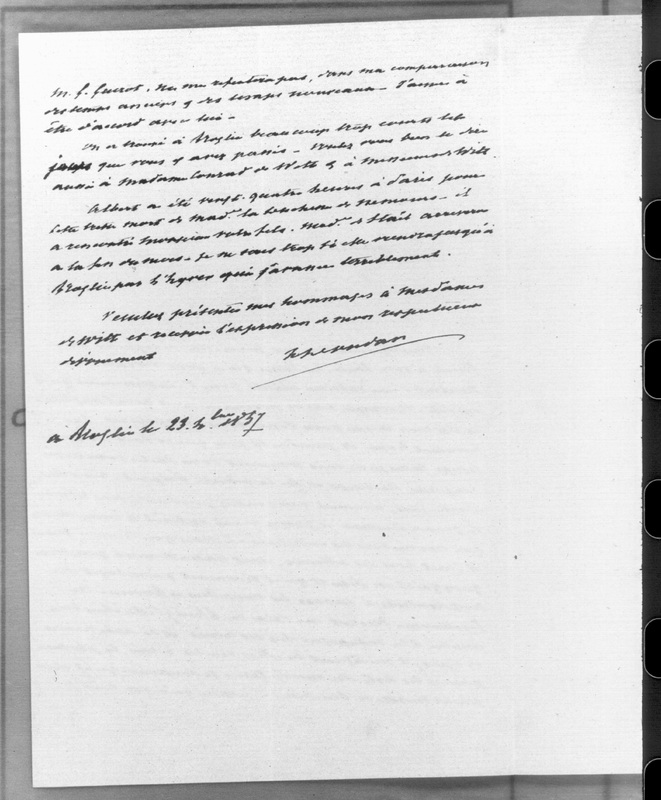 M. f. Guizot. ne me répondra pas, dans ma comparaison
des temps anciens & des temps nouveaux. J'aime à
être d'accord avec lui.
On a trouvé à Broglie beaucoup trop courts les
jours que vous y avez passés. Voulez vous bien le dire
aussi à Madame Conrad de Witt & à Messieurs de Witt.
Albert a été vingt-quatre heures à Paris pour
cette triste mort de Madᵉ la Duchesse de Nemours. il
a rencontré Monsieur votre fils. Madᵉ de Staël arrivera
à la fin du mois. Je ne sais trop si elle viendra jusqu'à
Broglie par l'hyver qui s'avance terriblement.
Veuillez présenter mes hommages à Mesdames
de Witt et recevoir l'expression de mon respectueux
dévouement
X Doudan
à Broglie le 23. 9bre 1857